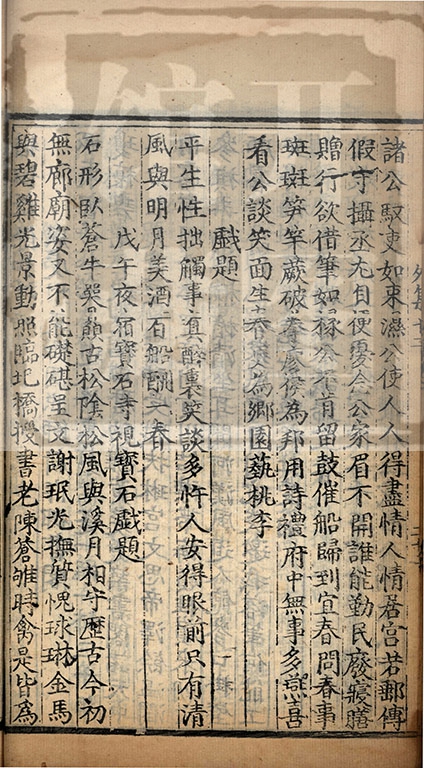 諸公馭吏如束濕公使人人得盡情人情居官若郵傳
假守攝丞尤自便憂公公家眉不開誰能勤民廢寢膳
贈行欲借筆如椽公不肯留鼓催船歸到宜春問春事
斑斑笋竿蕨破拳彦傑為邦用詩禮府中無事多燕喜
看公談笑面生春莫為鄉園蓺桃李
戲題
平生性拙觸事真醉裏笑談多忤人安得眼前只有清
風與明月美酒百船酬一春
戊午夜宿寶石寺視寶石戲題
石形臥蒼牛哭顛古松陰松風與溪月相守歷古今初
無廊廟姿又不能礎碪呈文謝珉光撫質愧球琳金馬
與碧雞光景動照臨圯橋授書老陳蒼雉時禽是皆為